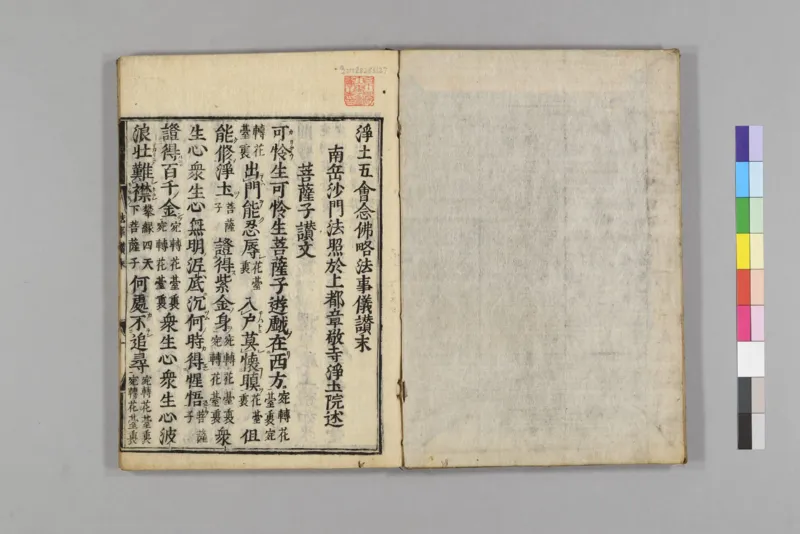 淨土五會念佛略法事儀讃末
南岳沙門法照於上都章敬寺淨土院述
菩薩子讃文
可怜生可怜生菩薩子遊戲在西方宛轉花臺裏宛
轉花臺裏出門能忍辱花臺裏入户莫懷瞋花臺裏但
能修淨土菩薩子證得紫金身宛轉花臺裏宛轉花臺裏衆
生心衆生心無明泥底沉何時得惺悟菩薩子
證得百千金宛轉花臺裏宛轉花臺裏衆生心衆生心波
浪壮難襟攀緣四天下菩薩子何處不追尋宛轉花臺裏宛轉花臺裏